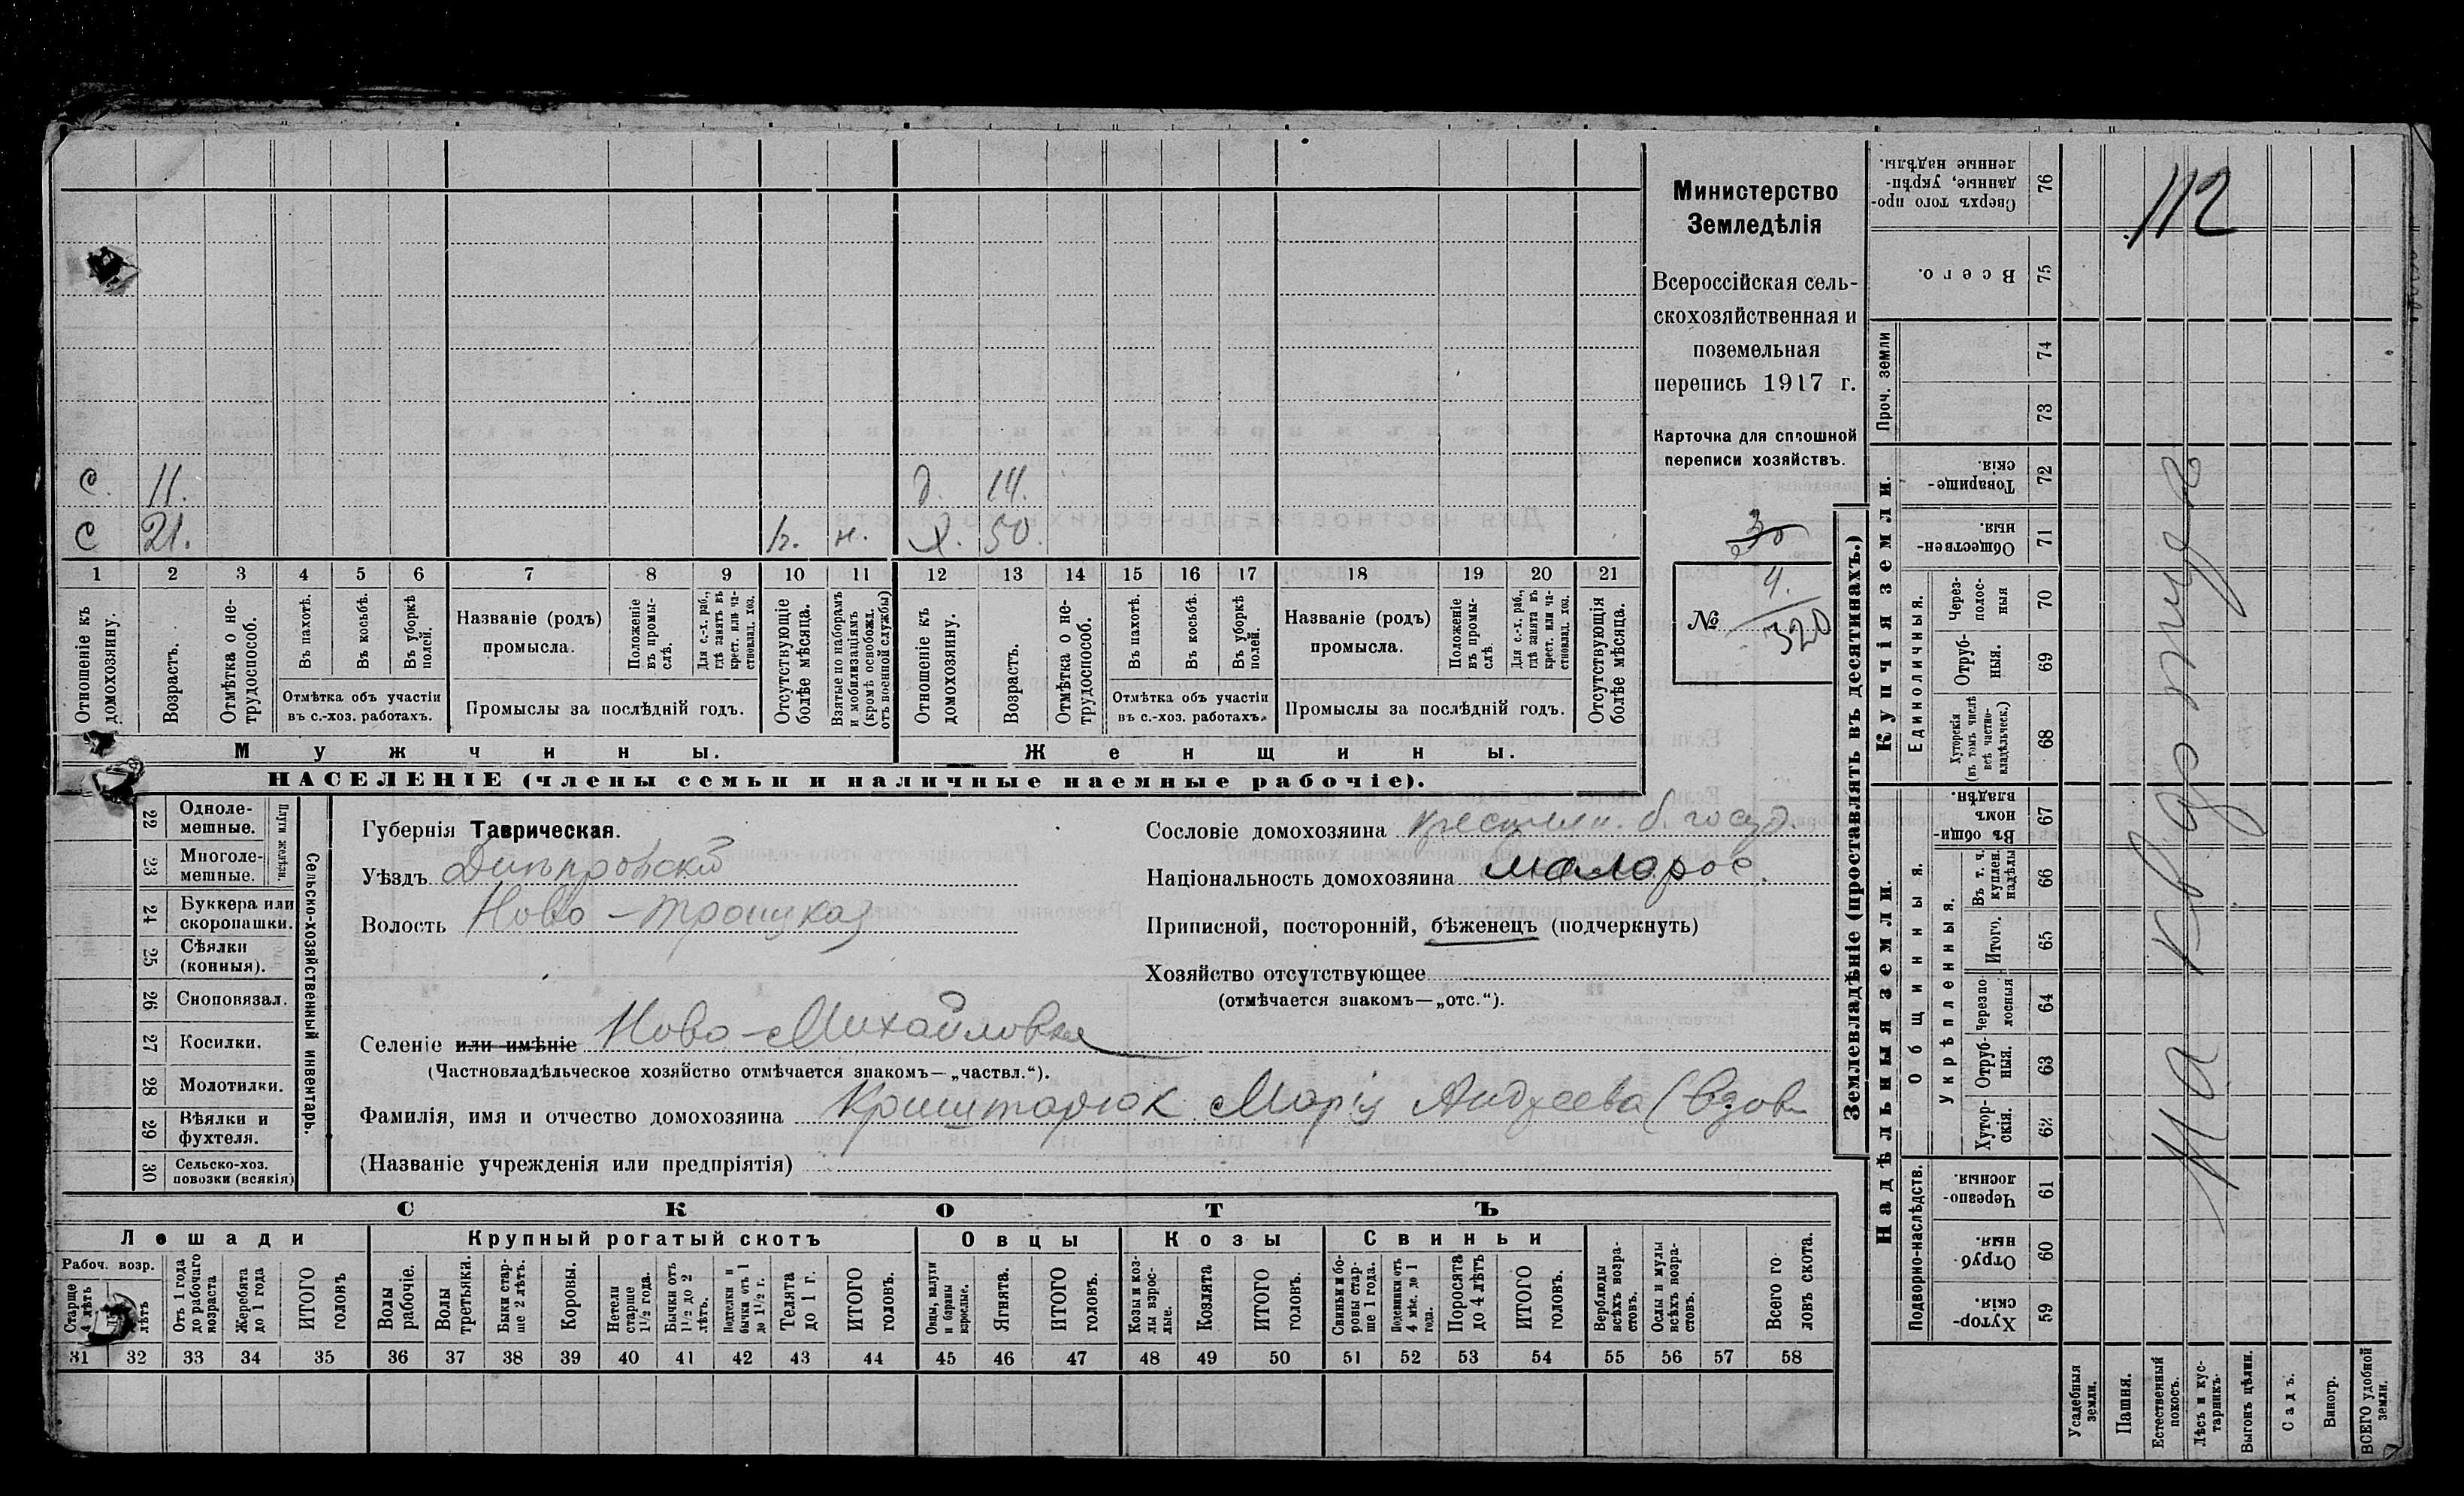 С. 11. д. 14.
С 21. н. х. 50.
1 2 3 4 5 6 7 8 9 10 11 12 13 14 15 16 17 18 19 20 21
Отношеніе къ домохозяину.
Возрастъ.
Отмѣтка о не-трудоспособ.
Въ пахотѣ.
Въ косьбѣ.
Въ уборкѣ полей.
Отмѣтка объ участіи
въ с.-хоз. работахъ.
Названіе (родъ)
промысла.
Положеніе въ промы-слѣ.
Для с.-х. раб., гдѣ занятъ въ крест. или ча-стновлад. хоз.
Промыслы за послѣдній годъ.
Отсутствующіе болѣе мѣсяца.
Взятые по наборамъ и мобилизаціямъ (кромѣ освобожд. отъ военной службы)
Отношеніе къ домохозяину.
Возрастъ.
Отмѣтка о не-трудоспособ.
Въ пахотѣ.
Въ косьбѣ.
Въ уборкѣ полей.
Отмѣтка объ участіи
въ с.-хоз. работахъ.
Названіе (родъ)
промысла.
Положеніе въ промы-слѣ.
Для с.-х. раб., гдѣ занята въ крест. или ча-стновлад. хоз.
Промыслы за послѣдній годъ.
Отсутствующія болѣе мѣсяца.
Мужчины.
Женщины.
НАСЕЛЕНІЕ (члены семьи и наличные наемные рабочіе).
Министерство
Земледѣлія
Всероссійская сель-
скохозяйственная и
поземельная
перепись 1917 г.
Карточка для сплошной
переписи хозяйствъ.
№ 4.
320
22 Одноле-мешные.
23 Многоле-мешные.
Плуги желѣзн.
24 Буккера или скоропашки.
25 Сѣялки (конныя).
26 Сноповязал.
27 Косилки.
28 Молотилки.
29 Вѣялки и фухтеля.
30 Сельско-хоз. повозки (всякія)
Сельско-хозяйственный инвентарь.
Губернія Таврическая.
Уѣздъ Днѣпровскій
Волость Ново-Троицкая
Селеніе или имѣніе Ново-Михайловка
(Частновладѣльческое хозяйство отмѣчается знакомъ—„частвл.“).
Фамилія, имя и отчество домохозяина Мария Андреева
(Названіе учрежденія или предпріятія)
Сословіе домохозяина крестьян. б. госуд.
Національность домохозяина малорос.
Приписной, посторонній, бѣженецъ (подчеркнуть)
Хозяйство отсутствующее
(отмѣчается знакомъ—„отс.“).
СКОТЪ
Лошади
Крупный рогатый скотъ
Овцы
Козы
Свиньи
Рабоч. возр.
Старше 4 лѣтъ
лѣтъ
Отъ 1 года до рабочаго возраста
Жеребята до 1 года
ИТОГО головъ
Волы рабочіе.
Волы третьяки.
Быки стар-ше 2 лѣтъ.
Коровы.
Нетели старше 1½ года.
Бычки отъ 1½ до 2 лѣтъ.
Подтелки и бычки отъ 1 до 1½ г.
Телята до 1 г.
ИТОГО головъ.
Овцы, валухи и бараны взрослые.
Ягнята.
ИТОГО головъ.
Козы и коз-лы взрос-лые.
Козлята
ИТОГО головъ.
Свиньи и бо-ровы стар-ше 1 года.
Подсвинки отъ 4 мѣс. до 1 года.
Поросята до 4 лѣтъ
ИТОГО головъ.
Верблюды всѣхъ возра-стовъ.
Ослы и мулы всѣхъ возра-стовъ.
Всего го-ловъ скота.
31 32 33 34 35 36 37 38 39 40 41 42 43 44 45 46 47 48 49 50 51 52 53 54 55 56 57 58
Землевладѣніе (проставлять въ десятинахъ.)
Купчія земли.
Надѣльныя земли.
Проч. земли
Единоличныя.
Общинныя.
Укрѣпленныя.
Подворно-наслѣдств.
Сверхъ того про-данные, укрѣп-ленные надѣлы. 76
Всего. 75
74
73
Товарище-скія. 72
Обществен-ныя. 71
Через-полос-ныя 70
Отруб-ныя. 69
Хуторскія (въ томъ числѣ всѣ частно-владѣльческ.) 68
Въ общин-номъ владѣн. 67
Въ т. ч. куплен. надѣлы 66
Итого. 65
Черезпо-лосныя 64
Отруб-ныя. 63
Хутор-скія. 62
Черезпо-лосныя. 61
Отруб-ныя. 60
Хутор-скія. 59
Усадебныя земли.
Пашня.
Естественный покосъ.
Лѣсъ и кус-тарникъ.
Выгонъ цѣлин.
Садъ.
Виногр.
ВСЕГО удобной земли.
112
На квартире